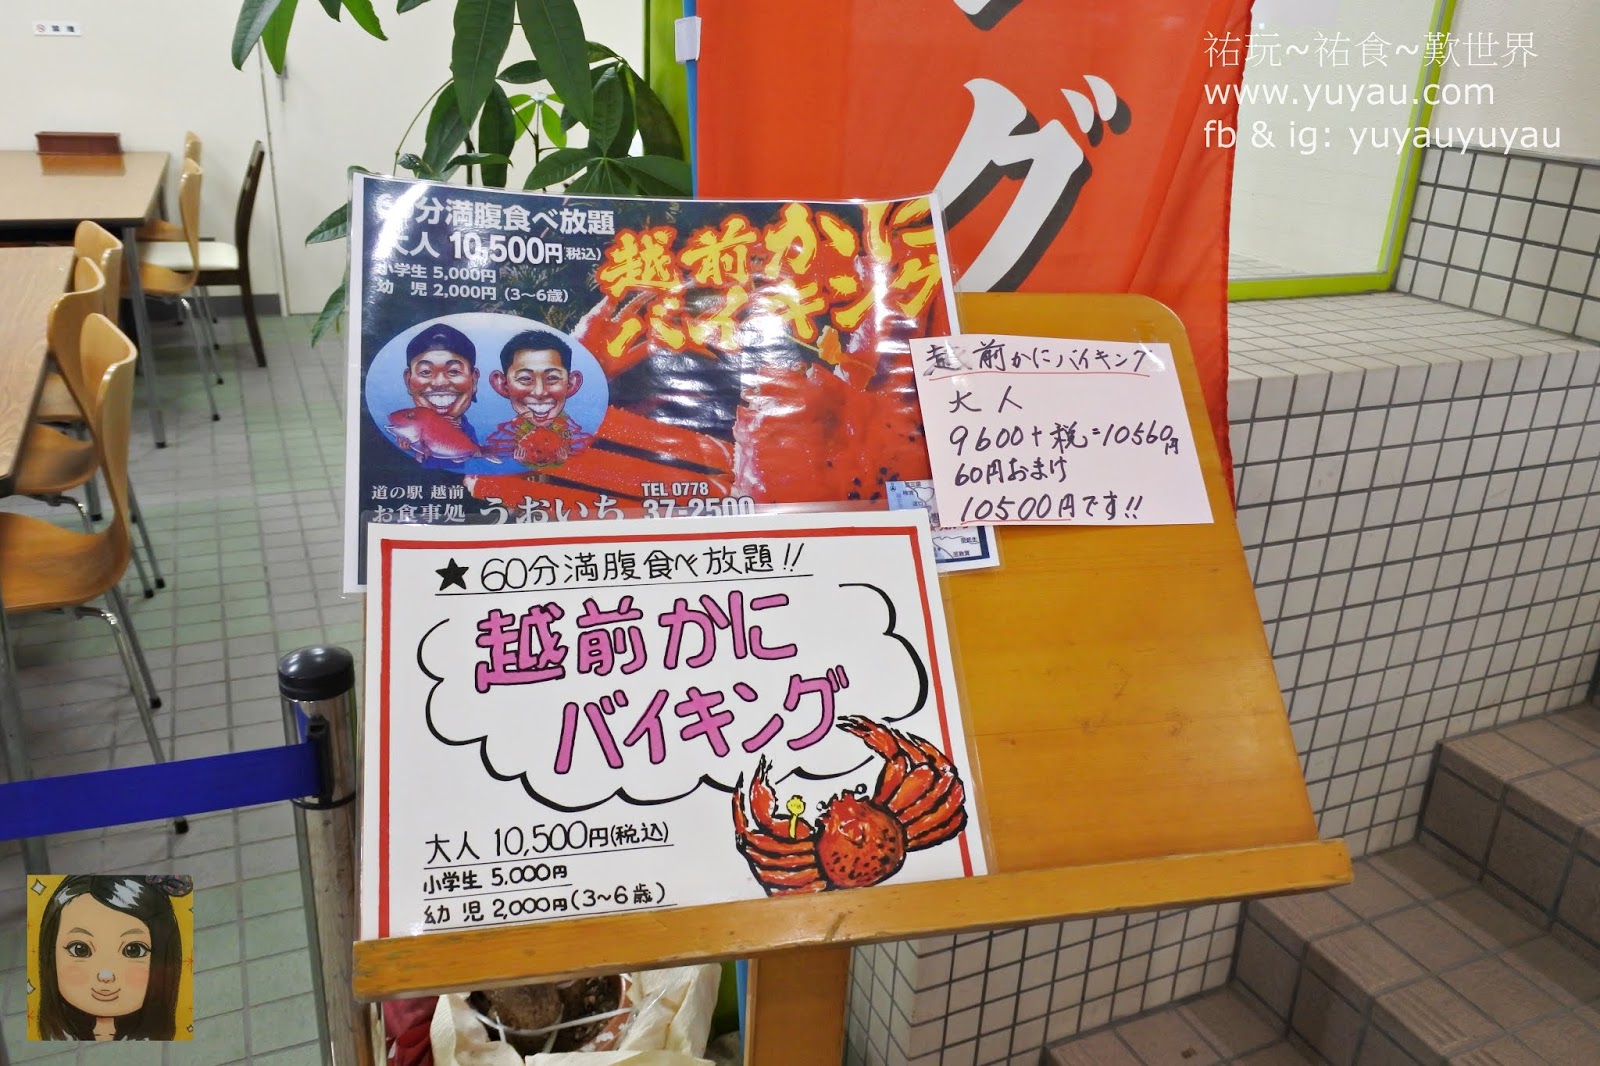 禁煙
祐玩~祐食~歎世界
www.yuyau.com
fb & ig: yuyauyuyau
グ
分満腹食べ放題
大人 10,500円(税込)
小学生 5,000円
幼 児 2,000円 (3〜6歳)
越前かに
バイキング
道の駅 越前
お食事処 うおいち
TEL 0778
37-2500
越前かにバイキング
大人
9600+税=10560円
60円おまけ
10500円です!!
★60分満腹食べ放題!!
越前かに
バイキング
大人 10,500円(税込)
小学生 5,000円
幼 児 2,000円(3〜6歳)